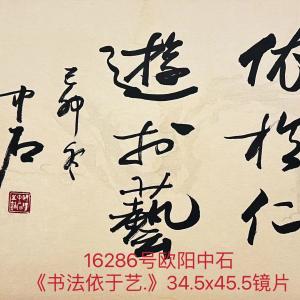 依於仁
遊於藝
己卯冬
中石
16286号欧阳中石
《书法依于艺.》34.5x45.5镜片